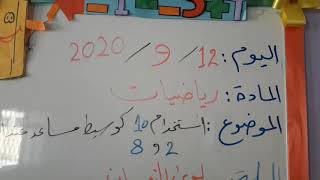 اليوم: 12 / 9 / 2020
المادة: رياضيات
الموضوع: استخدام 10 كوسيط مساعد
2 و 8